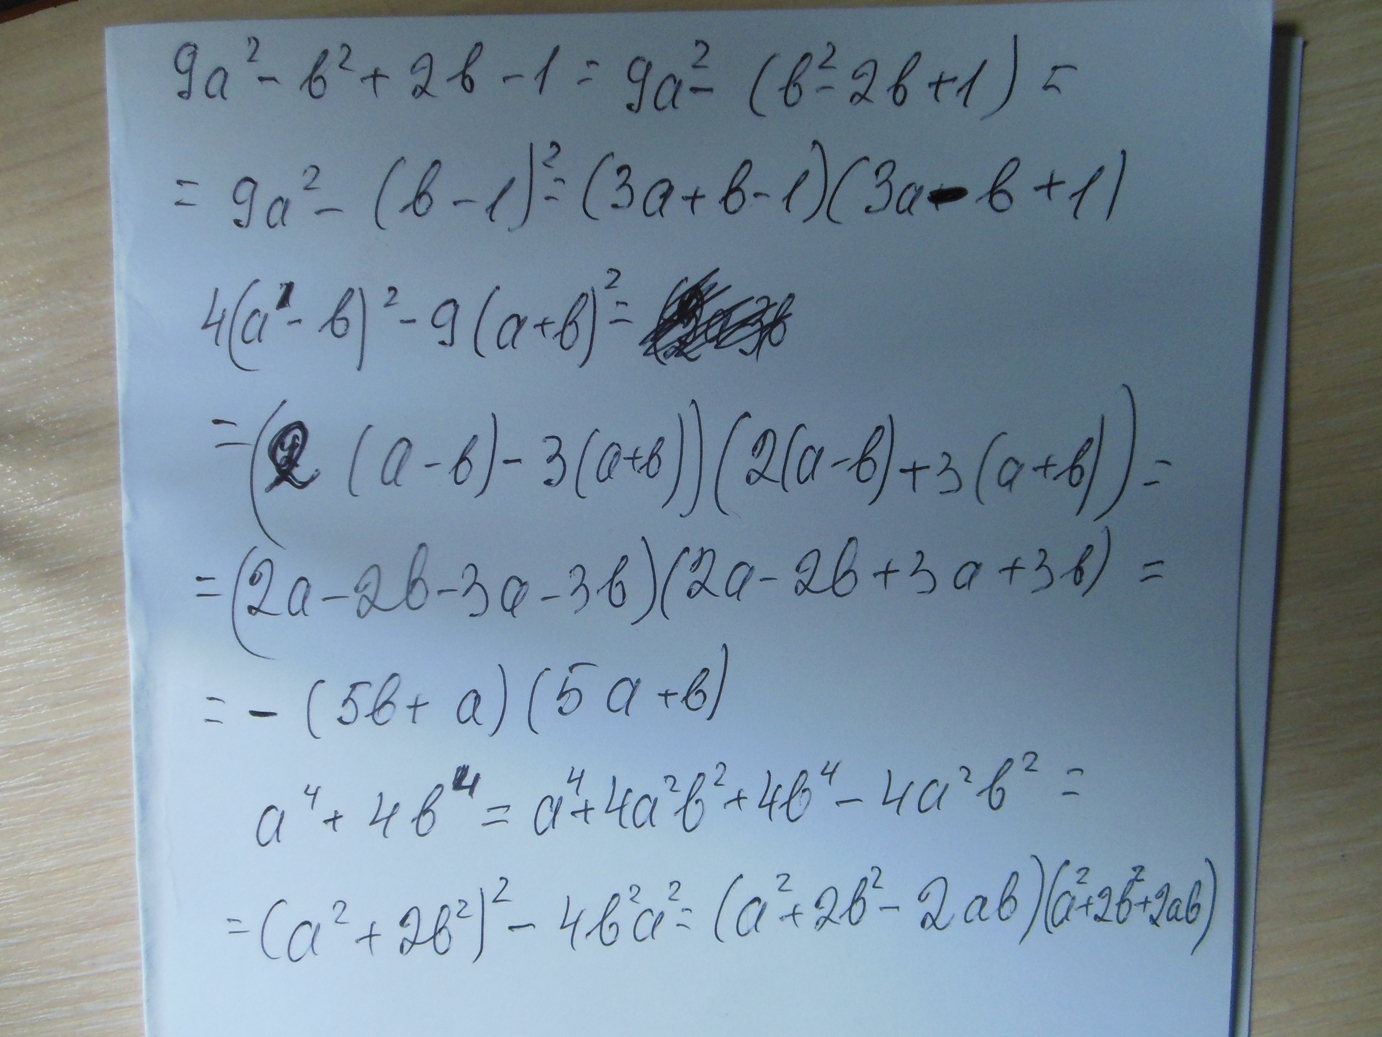 9a² - b² + 2b - 1 = 9a² - (b² - 2b + 1) =
= 9a² - (b - 1)² = (3a + b - 1)(3a - b + 1)
4(a - b)² - 9(a + b)² =
= (2(a - b) - 3(a + b))(2(a - b) + 3(a + b)) =
= (2a - 2b - 3a - 3b)(2a - 2b + 3a + 3b) =
= - (5b + a)(5a + b)
a⁴ + 4b⁴ = a⁴ + 4a²b² + 4b⁴ - 4a²b² =
= (a² + 2b²)² - 4b²a² = (a² + 2b² - 2ab)(a² + 2b² + 2ab)